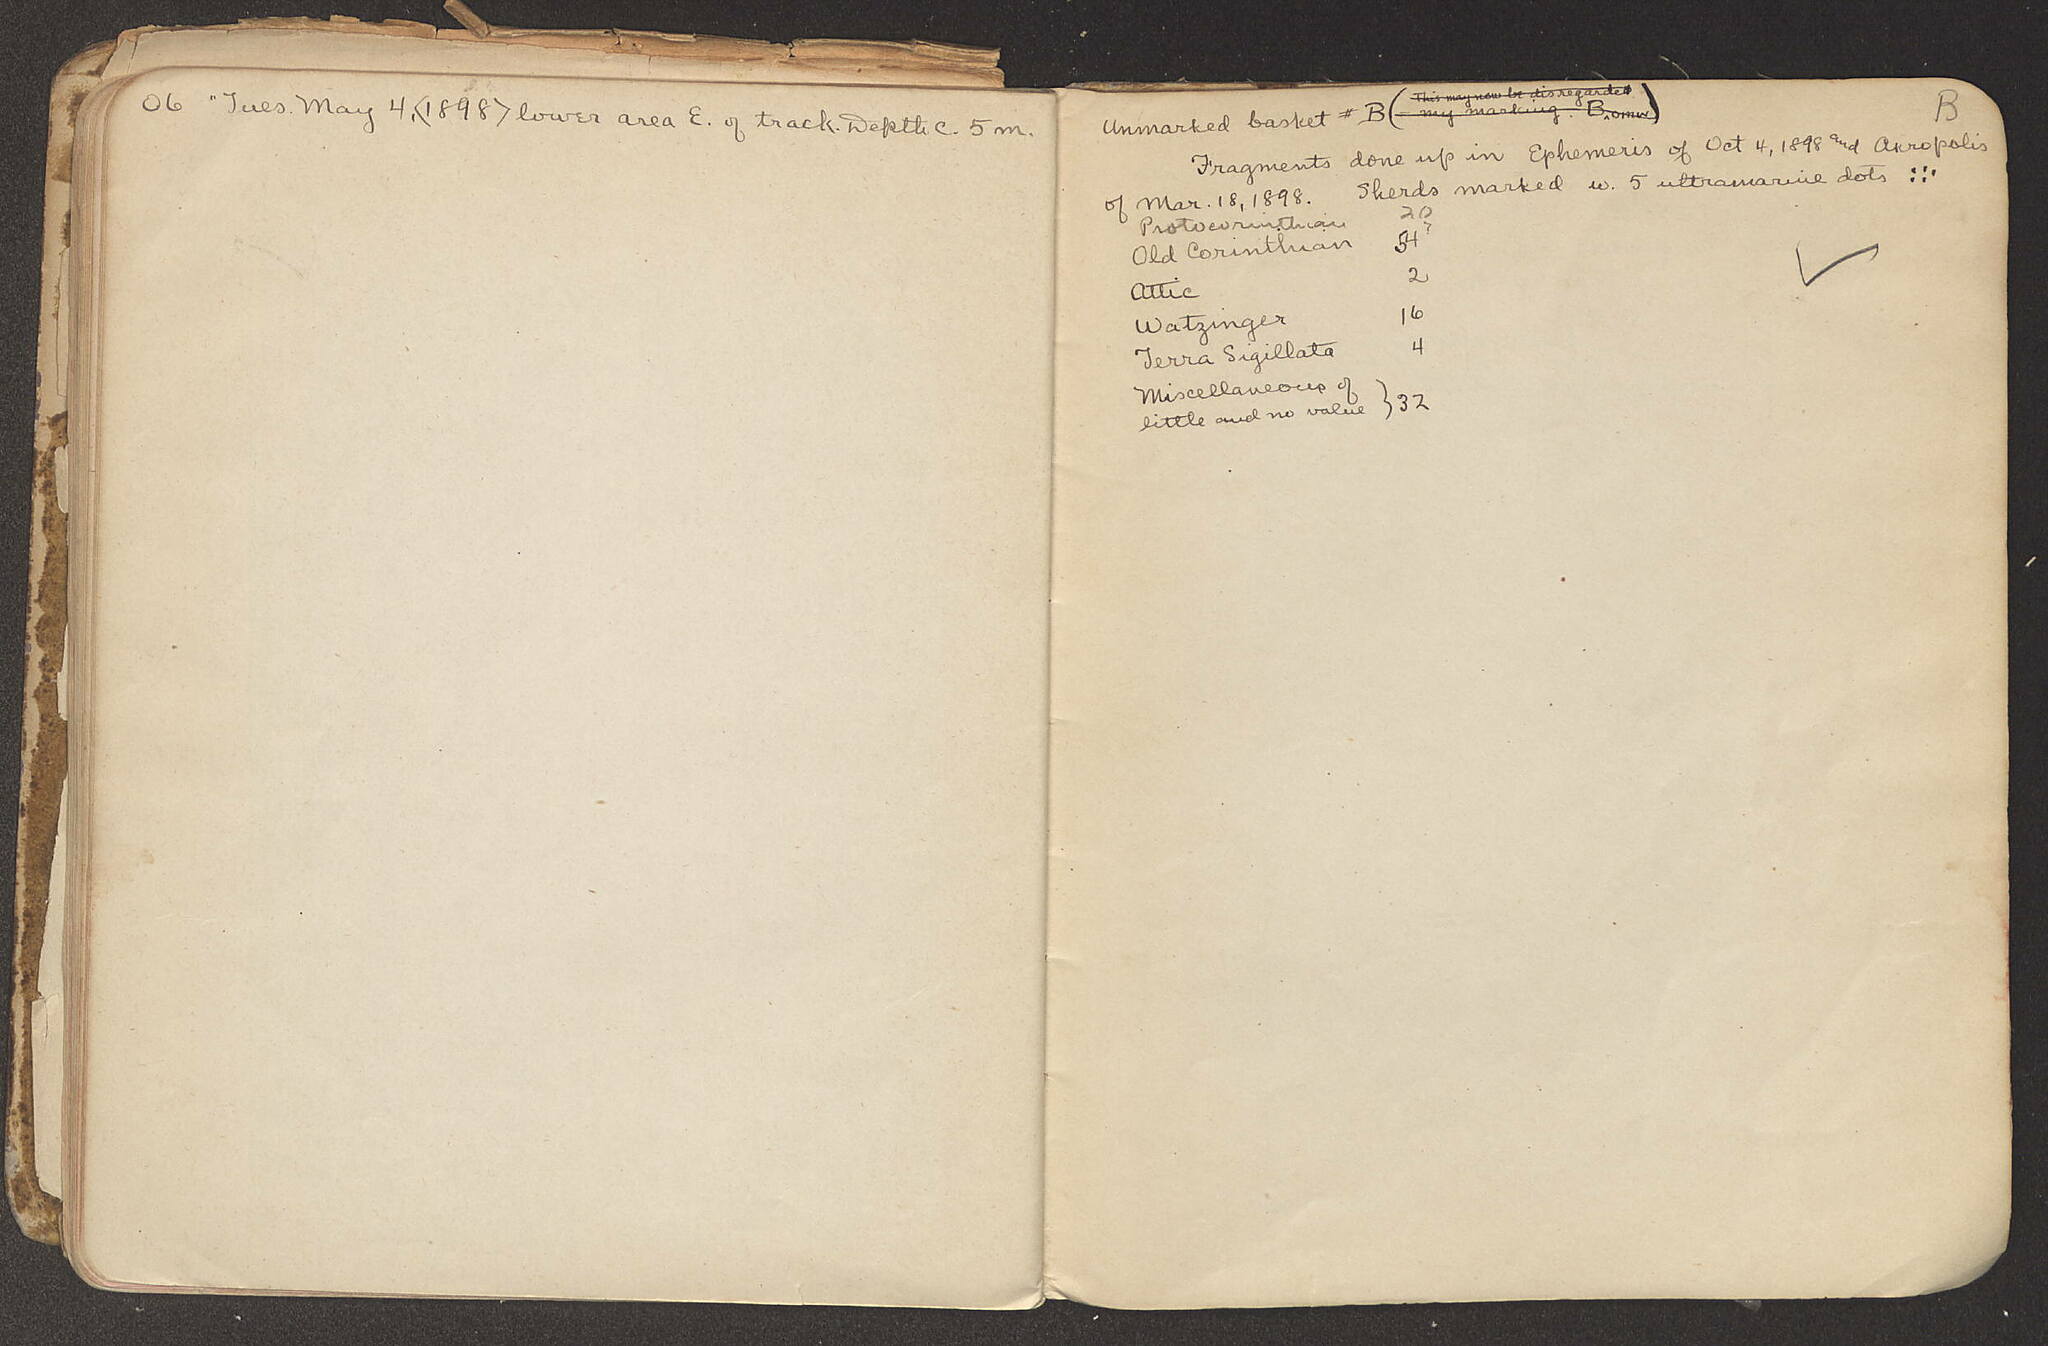 06 "Tues. May 4,<1898> lower area E. of track. Depth c. 5 m.
B
This may now be disregarded
Unmarked basket # B (– my marking. B. )
Fragments done up in Ephemeris of Oct 4, 1898 and Akropolis
of Mar. 18, 1898. Sherds marked w. 5 ultramarine dots
Protocorinthian 20
Old Corinthian 54?
Attic 2
Watzinger 16
Terra Sigillata 4
Miscellaneous of
little and no value } 32